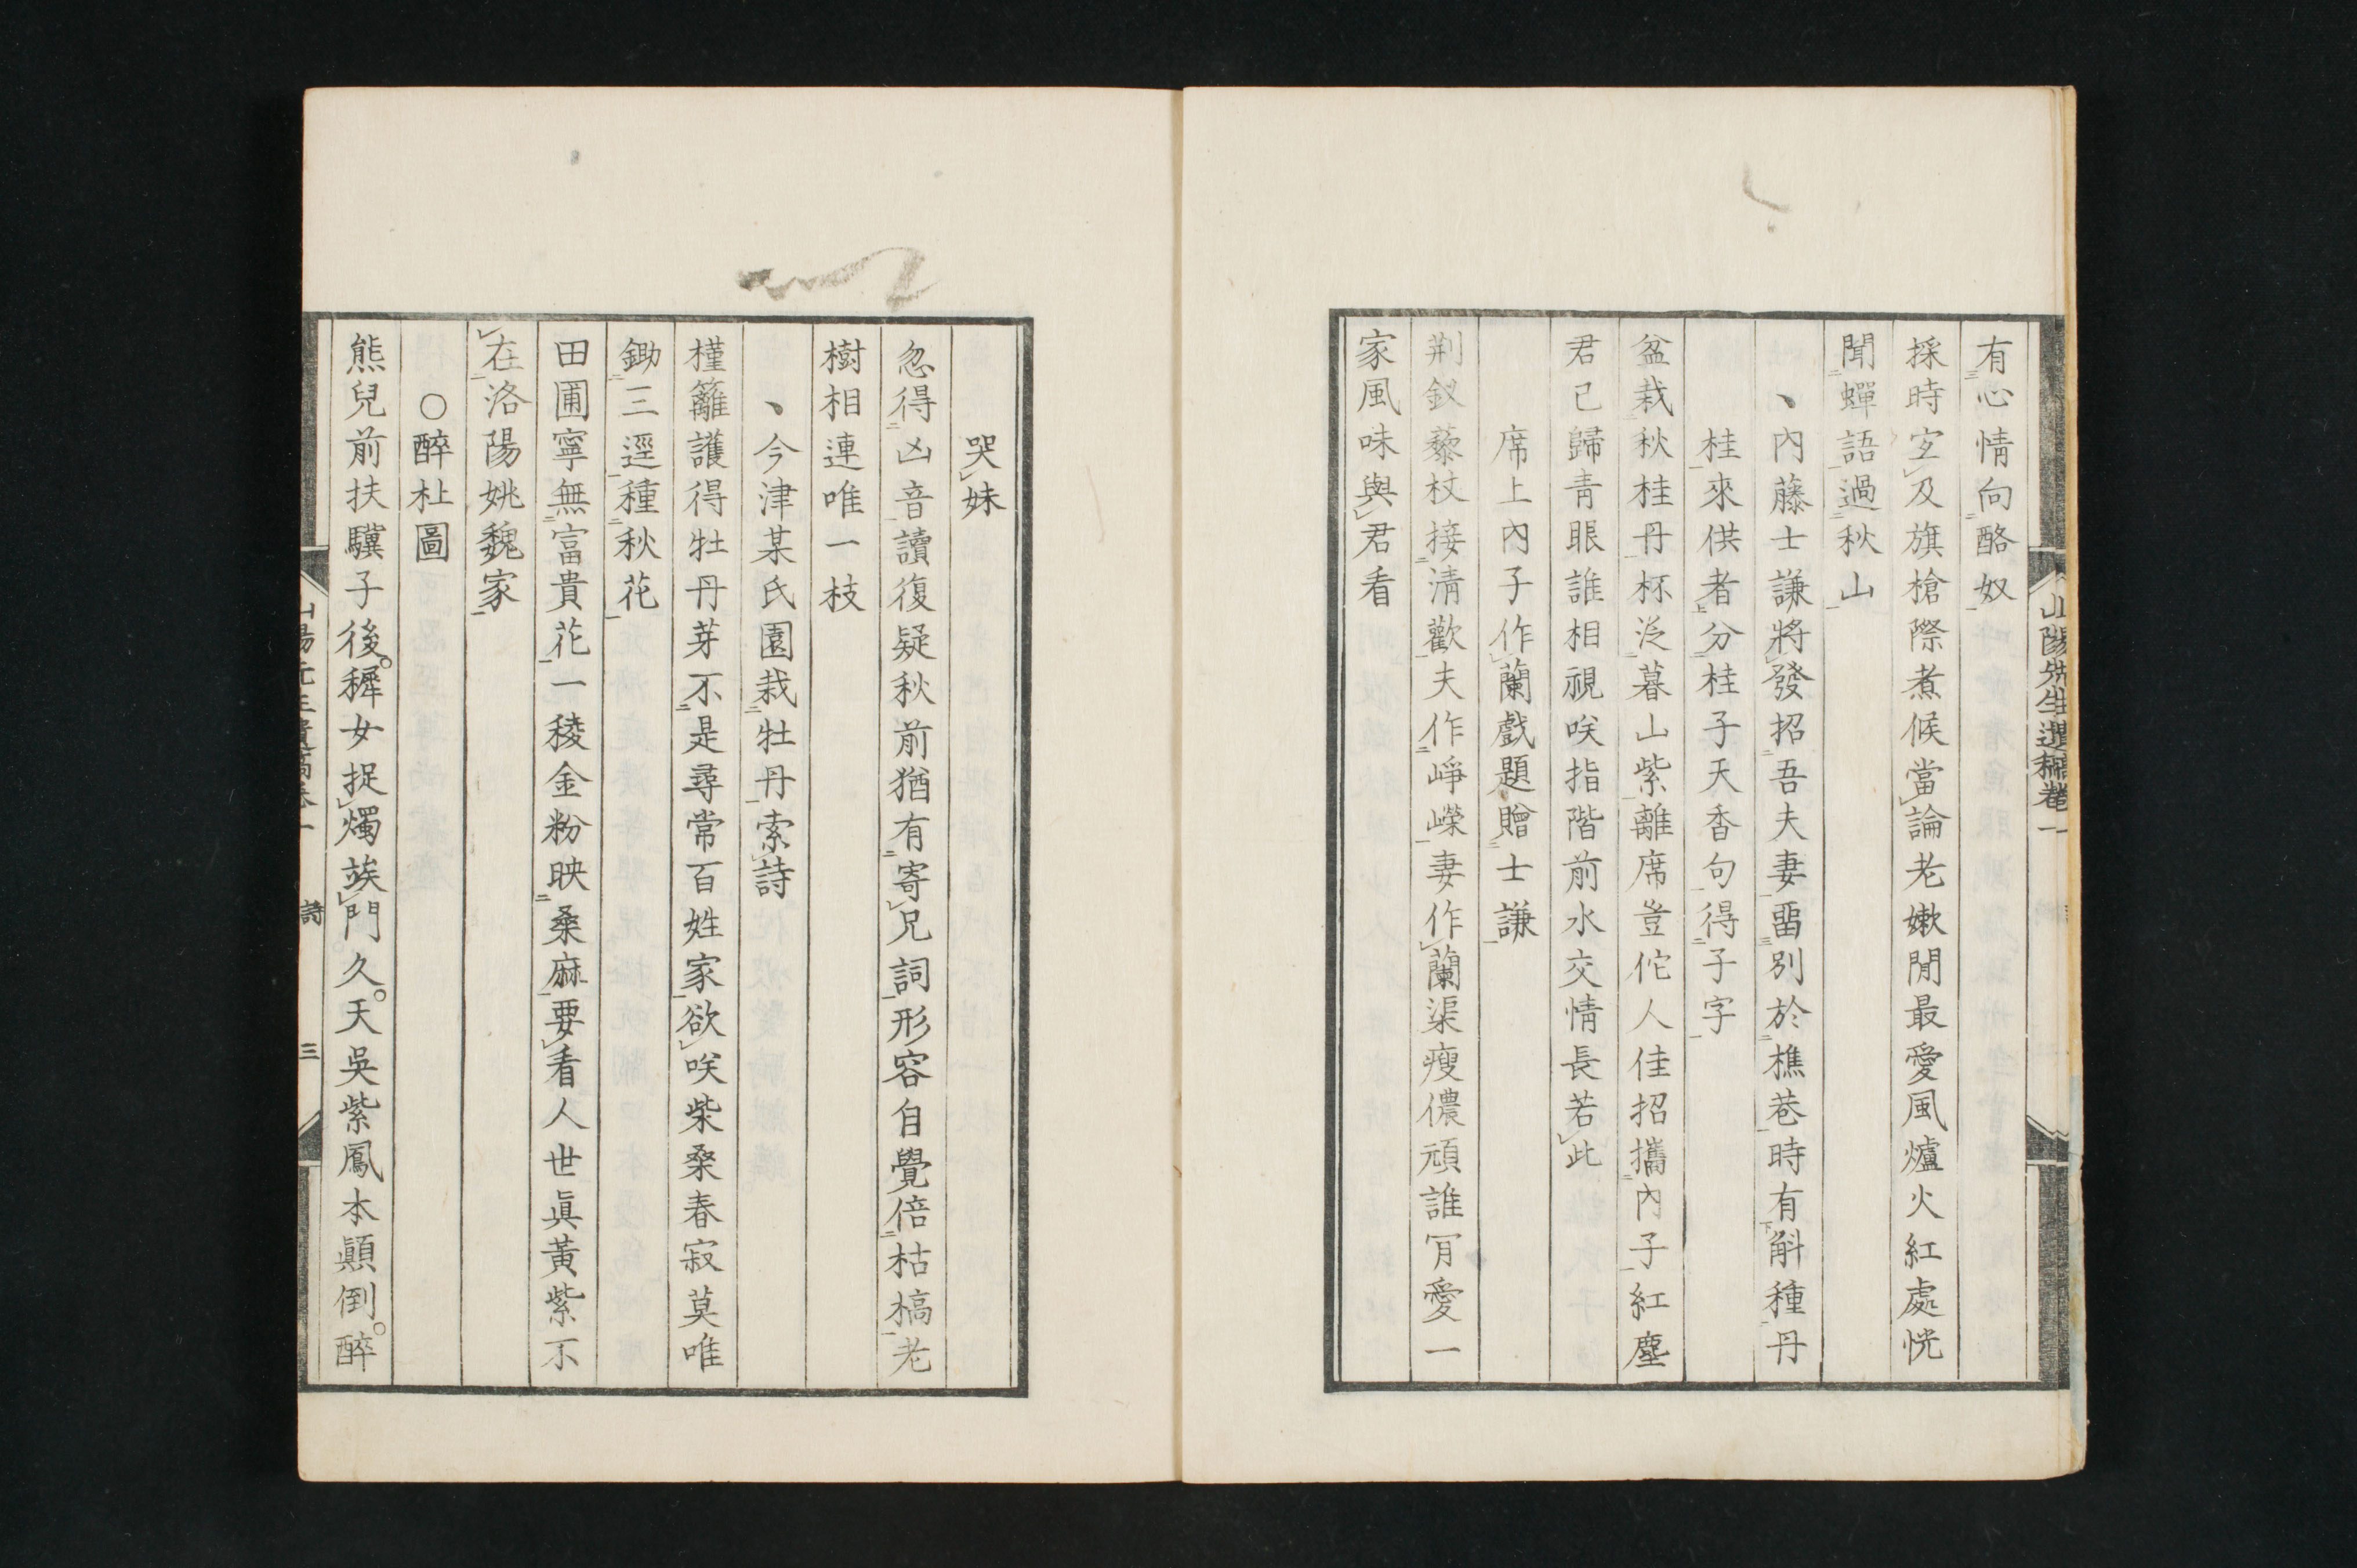 山陽先生遺稿卷一
有心情向酪奴
採時㝎及旗槍際煮候當論老嫩閒最愛風爐火紅處恍
聞蟬語過秋山
丶內藤士謙將發招吾夫妻畱別於樵巷時有斛種丹
桂來供者分桂子天香句得子字
盆栽秋桂丹杯泛暮山紫離席豈佗人佳招攜內子紅塵
君已歸青眼誰相視咲指階前水交情長若此
席上內子作蘭戲題贈士謙
荆釵藜杖接淸歡夫作崢嶸妻作蘭渠瘦儂頑誰肎愛一
家風味與君看
哭妹
忽得凶音讀復疑秋前猶有寄兄詞形容自覺倍枯槁老
樹相連唯一枝
丶今津某氏園栽牡丹索詩
槿籬護得牡丹芽不是尋常百姓家欲咲柴桑春寂莫唯
鋤三逕種秋花
田圃寧無富貴花一稜金粉映桑麻要看人世眞黃紫不
在洛陽姚魏家
○醉杜圖
熊兒前扶驥子後穉女捉燭竢門久天吳紫鳳本顚倒醉
山陽先生遺稿卷一 詩 三